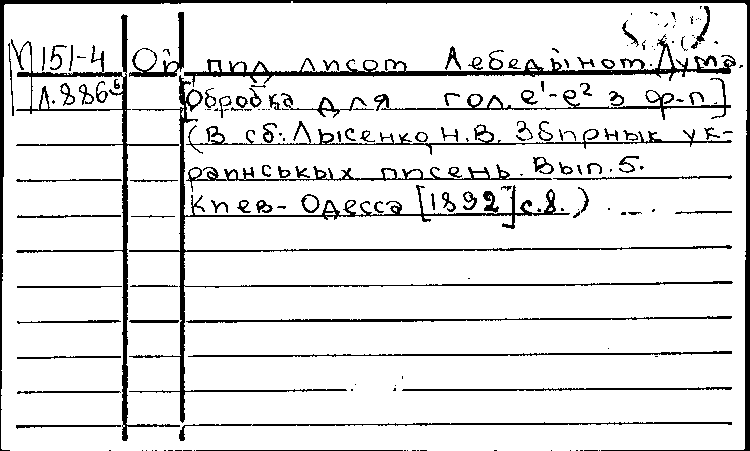 М 151-4 Ой пид лисом Лебедыном. Дума.
Л.886⁵ [Обробка для гол. e¹-e² з ф-п.]
(В сб: Лысенко, Н.В. Збирнык ук-
раинськых писень. Вып. 5.
Киев-Одесса [1892] с.8.)